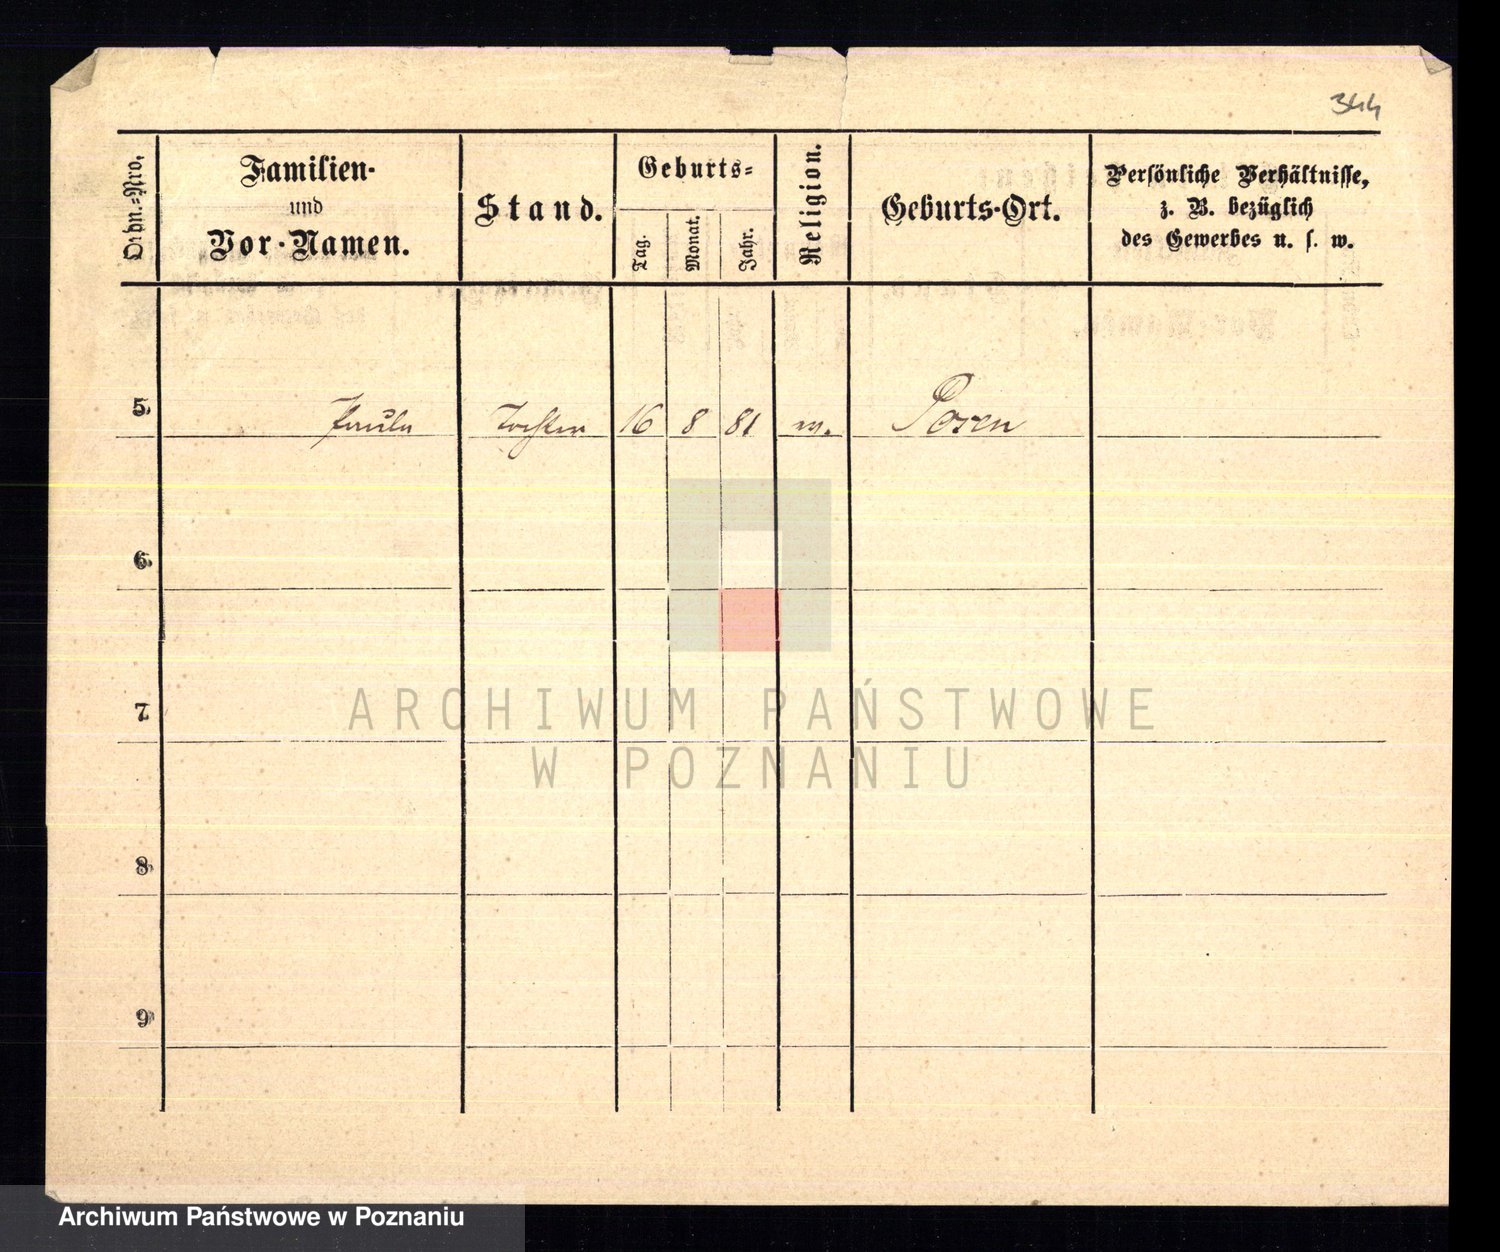 344
Ordn.=Nro.
Familien-
und
Vor-Namen.
Stand.
Geburts=
Tag.
Monat.
Jahr.
Religion.
Geburts-Ort.
Persönliche Verhältnisse,
z. B. bezüglich
des Gewerbes u. s. w.
5. Paula Tochter 16 8 81 m. Posen
6.
7.
8.
9.
ARCHIWUM PAŃSTWOWE
W POZNANIU
Archiwum Państwowe w Poznaniu